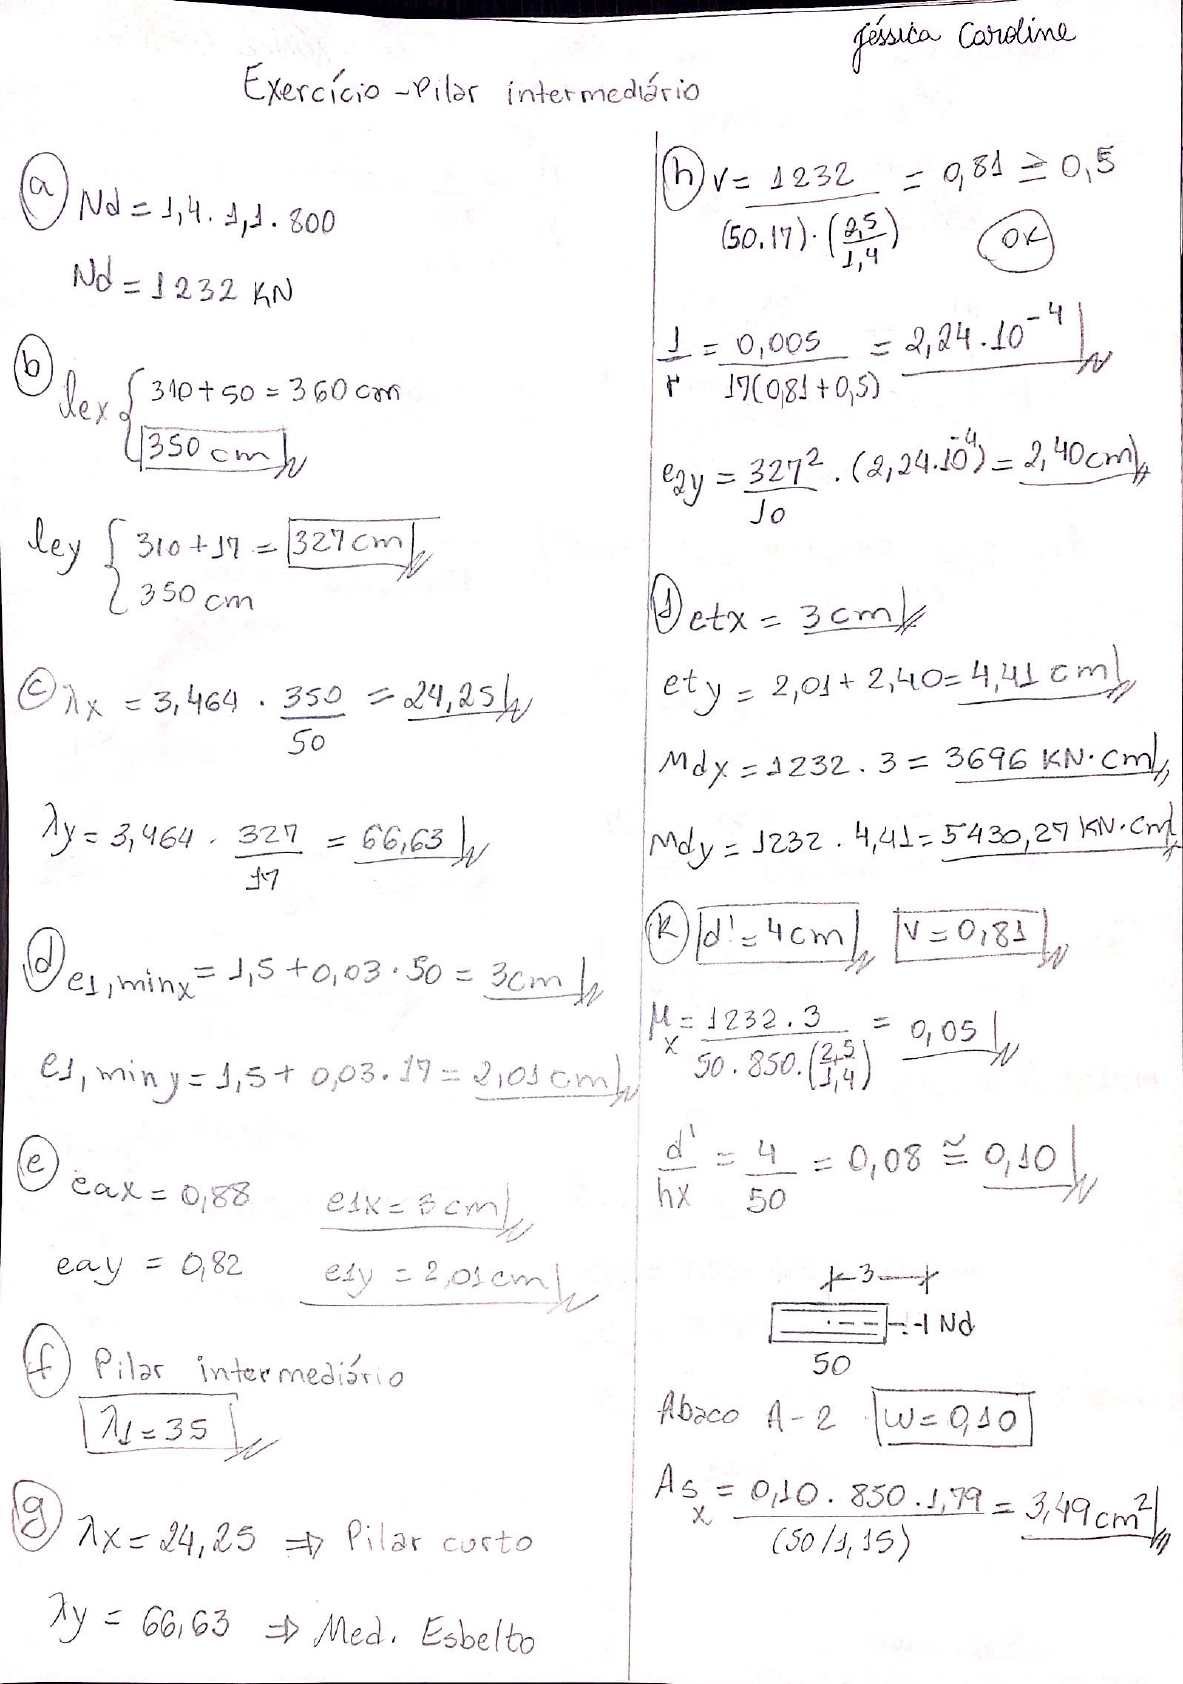 Jéssica Caroline
Exercício - Pilar intermediário
a) Nd = 1,4 . 1,1 . 800
Nd = 1232 KN
b) lex { 310 + 50 = 360 cm
350 cm
ley { 310 + 17 = 327 cm
350 cm
c) λx = 3,464 . 350/50 = 24,25
λy = 3,464 . 327/17 = 66,63
d) e1,minx = 1,5 + 0,03 . 50 = 3cm
e1,miny = 1,5 + 0,03 . 17 = 2,01 cm
e) eax = 0,88 e1x = 3 cm
eay = 0,82 e1y = 2,01 cm
f) Pilar intermediário
λ1 = 35
g) λx = 24,25 ⇒ Pilar curto
λy = 66,63 ⇒ Med. Esbelto
h) V = 1232/((50.17) . (2,5/1,4)) = 0,81 ≥ 0,5 OK
1/r = 0,005/17(0,81 + 0,5) = 2,24 . 10^-4
e2y = 327²/10 . (2,24.10^-4) = 2,40 cm
J) etx = 3 cm
ety = 2,01 + 2,40 = 4,41 cm
Mdx = 1232 . 3 = 3696 KN.cm
Mdy = 1232 . 4,41 = 5430,27 KN.cm
K) d' = 4cm V = 0,81
μx = 1232 . 3/(50 . 850 . (2,5/1,4)) = 0,05
d'/hx = 4/50 = 0,08 ≅ 0,10
3
Nd
50
Abaco A-2 W = 0,10
Asx = 0,10 . 850 . 1,79/(50/1,15) = 3,49 cm²